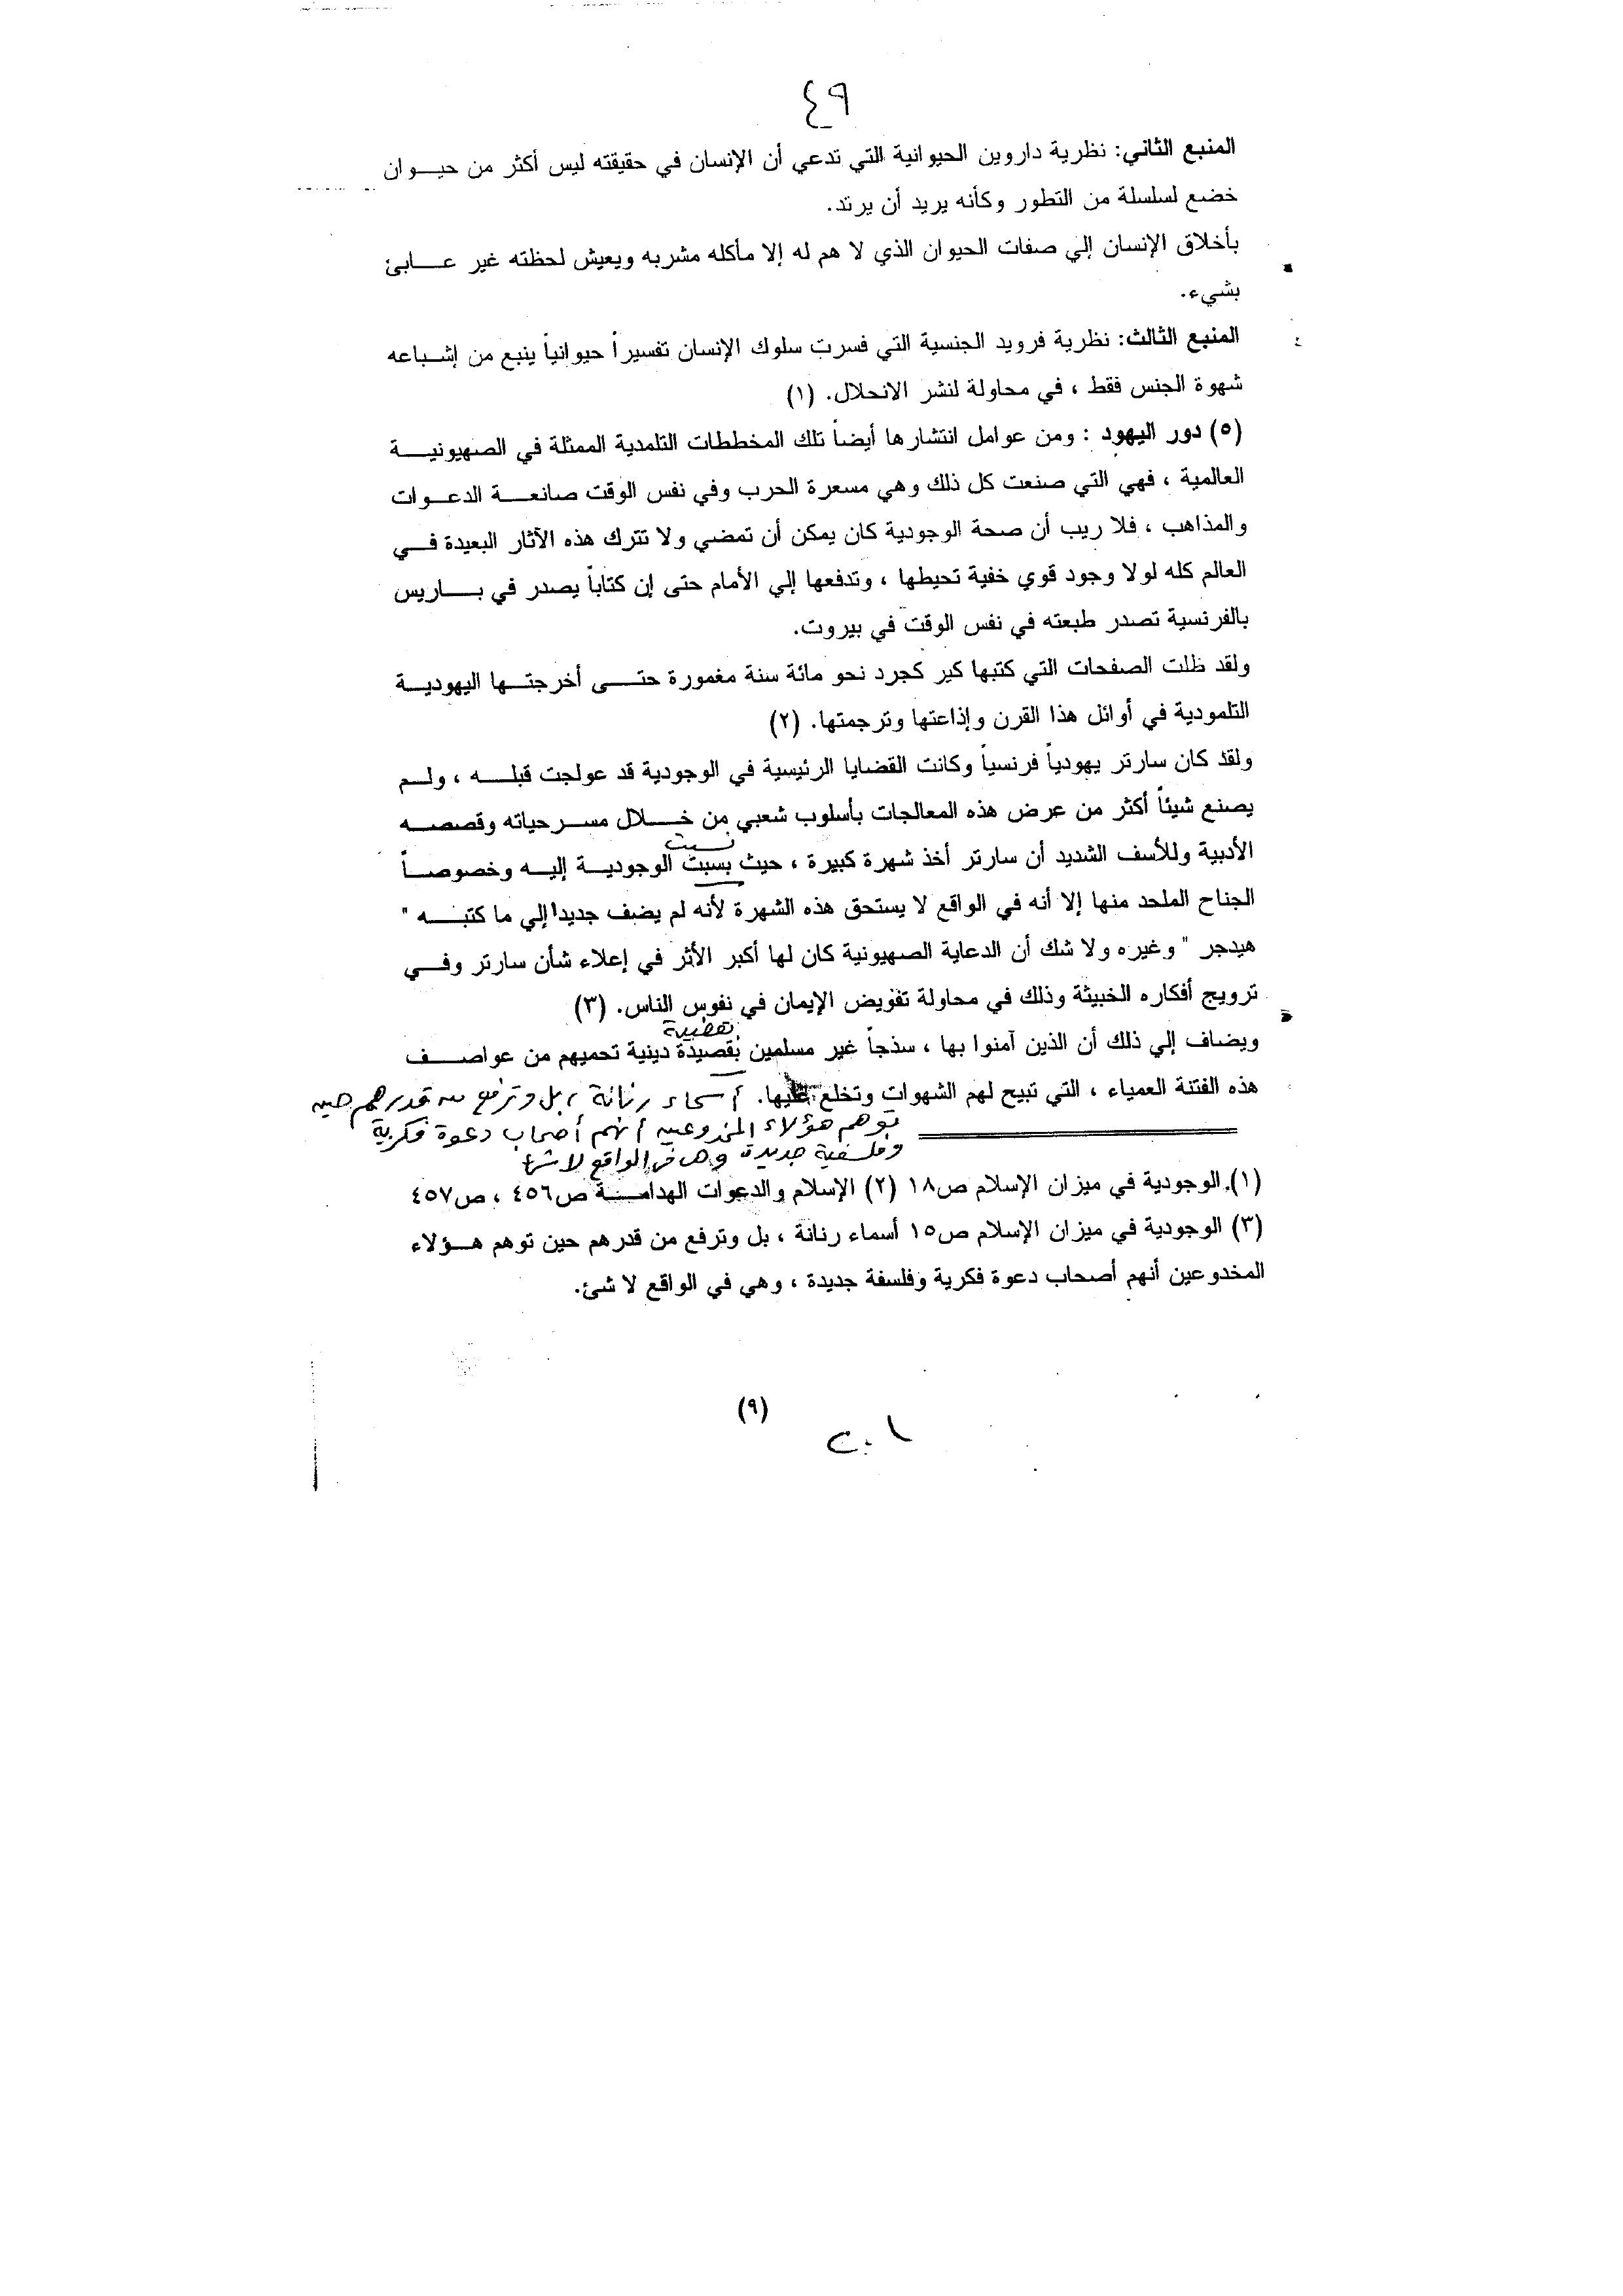 ٤٩
المنبع الثاني: نظرية داروين الحيوانية التي تدعي أن الإنسان في حقيقته ليس أكثر من حيوان
خضع لسلسلة من التطور وكأنه يريد أن يرتد.
بأخلاق الإنسان إلي صفات الحيوان الذي لا هم له إلا مأكله مشربه ويعيش لحظته غير عابئ
بشيء.
المنبع الثالث: نظرية فرويد الجنسية التي فسرت سلوك الإنسان تفسيراً حيوانياً ينبع من إشباعه
شهوة الجنس فقط ، في محاولة لنشر الانحلال. (١)
(٥) دور اليهود : ومن عوامل انتشارها أيضاً تلك المخططات التلمدية الممثلة في الصهيونية
العالمية ، فهي التي صنعت كل ذلك وهي مسعرة الحرب وفي نفس الوقت صانعة الدعوات
والمذاهب ، فلا ريب أن صحة الوجودية كان يمكن أن تمضي ولا تترك هذه الآثار البعيدة في
العالم كله لولا وجود قوي خفية تحيطها ، وتدفعها إلي الأمام حتى إن كتاباً يصدر في باريس
بالفرنسية تصدر طبعته في نفس الوقت في بيروت.
ولقد ظلت الصفحات التي كتبها كير كجرد نحو مائة سنة مغمورة حتى أخرجتها اليهودية
التلمودية في أوائل هذا القرن وإذاعتها وترجمتها. (٢)
ولقد كان سارتر يهودياً فرنسياً وكانت القضايا الرئيسية في الوجودية قد عولجت قبله ، ولم
يصنع شيئاً أكثر من عرض هذه المعالجات بأسلوب شعبي من خلال مسرحياته وقصصه
نسبت
الأدبية وللأسف الشديد أن سارتر أخذ شهرة كبيرة ، حيث بسبت الوجودية إليه وخصوصاً
الجناح الملحد منها إلا أنه في الواقع لا يستحق هذه الشهرة لأنه لم يضف جديدا إلي ما كتبه "
هيدجر " وغيره ولا شك أن الدعاية الصهيونية كان لها أكبر الأثر في إعلاء شأن سارتر وفي
ترويج أفكاره الخبيثة وذلك في محاولة تقويض الإيمان في نفوس الناس. (٣)
ويضاف إلي ذلك أن الذين آمنوا بها ، سذجاً غير مسلمين بقصيدة دينية تحميهم من عواصف
هذه الفتنة العمياء ، التي تبيح لهم الشهوات وتخلع عليها. أسماء رنانة ، بل وترفع من قدرهم حين
توهم هؤلاء المخدوعين أنهم أصحاب دعوة فكرية
وفلسفية جديدة وهي في الواقع لا شئ
(١) الوجودية في ميزان الإسلام ص١٨ (٢) الإسلام والدعوات الهدامة ص٤٥٦ ، ص٤٥٧
(٣) الوجودية في ميزان الإسلام ص١٥ أسماء رنانة ، بل وترفع من قدرهم حين توهم هؤلاء
المخدوعين أنهم أصحاب دعوة فكرية وفلسفة جديدة ، وهي في الواقع لا شئ.
(٩)